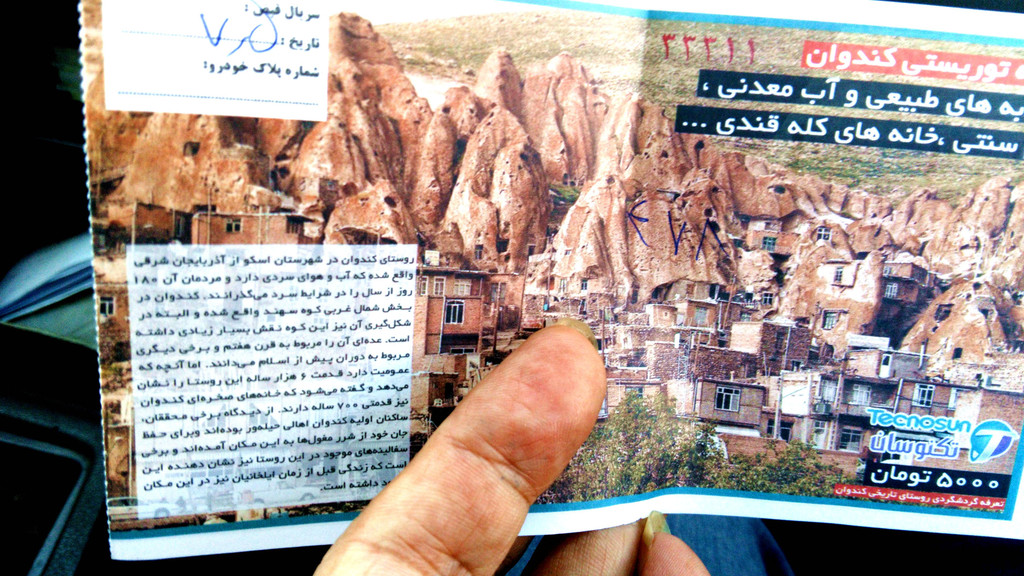 سریال قبض :
تاریخ :
شماره پلاک خودرو:
۳۳۳۱۱
توریستی کندوان
به های طبیعی و آب معدنی ،
سنتی ،خانه های کله قندی ...
روستای کندوان در شهرستان اسکو از آذربایجان شرقی
واقع شده که آب و هوای سردی دارد و مردمان آن ۱۸۰
روز از سال را در شرایط سرد می‌گذرانند. کندوان در
بخش شمال غربی کوه سهند واقع شده و البته در
شکل‌گیری آن نیز این کوه نقش بسیار زیادی داشته
است. عده‌ای آن را مربوط به قرن هفتم و برخی دیگری
مربوط به دوران پیش از اسلام می‌دانند. اما آنچه که
عمومیت دارد قدمت ۶ هزار ساله این روستا را نشان
می‌دهد و گفته می‌شود که خانه‌های صخره‌ای کندوان
نیز قدمتی ۷۰۰ ساله دارند. از دیدگاه برخی محققان،
ساکنان اولیه کندوان اهالی حیله‌ور بوده‌اند وبرای حفظ
جان خود از شرر مغول‌ها به این مکان آمده‌اند و برخی
سفالینه‌های موجود در این روستا نیز نشان دهنده این
است که زندگی قبل از زمان ایلخانیان نیز در این مکان
داشته است.
Tecnosun
تکنوسان
۵۰۰۰ تومان
تعرفه گردشگردی روستای تاریخی کندوان